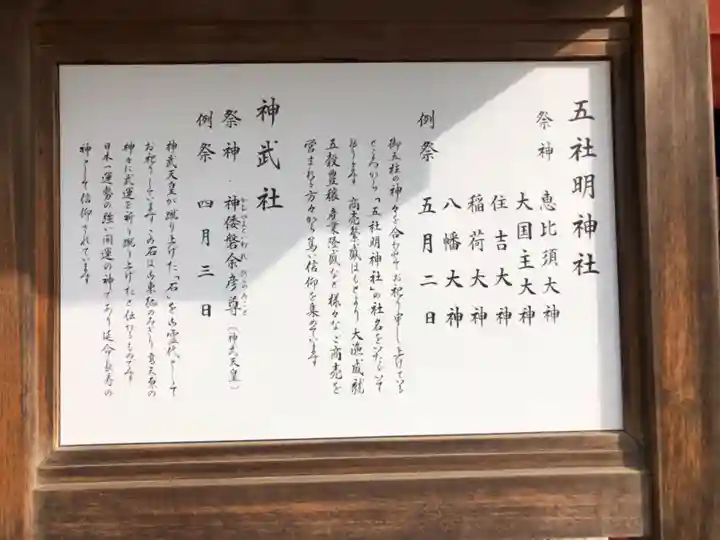 五社明神社
祭神 恵比須大神
大国主大神
住吉大神
稲荷大神
八幡大神
例祭 五月二日
御五柱の神々を合わせてお祀り申し上げている
ところから「五社明神社」の社名をいただいて
おります 商売繁盛はもとより 大漁成就
五穀豊穣 産業隆盛など様々なご商売を
営まれる方々から篤い信仰を集めています
神武社
祭神・神倭磐余彦尊（神武天皇）
例祭 四月三日
神武天皇が蹴り上げた「石」を御霊代として
お祀りしています この石は御東征のみぎり 高天原の
神々に武運を祈り蹴り上げたと伝わるものです
日本一運勢の強い開運の神であり延命長寿の
神として信仰されています